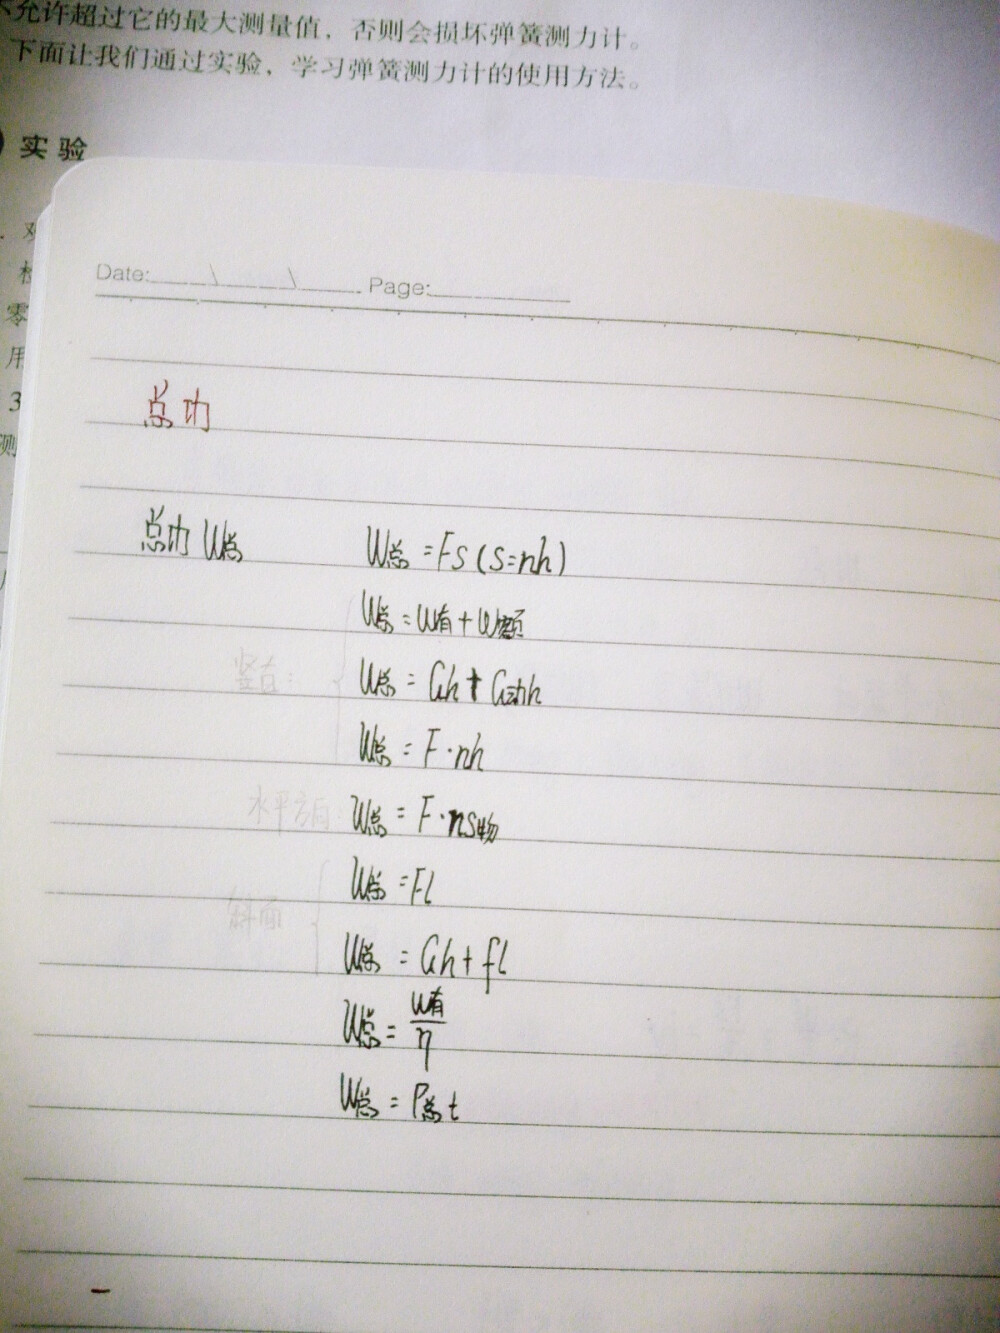 不允许超过它的最大测量值，否则会损坏弹簧测力计。
下面让我们通过实验，学习弹簧测力计的使用方法。
实验
零
用
3
测
Date: / / Page:
总功
总功 W总 W总=Fs(s=nh)
W总=W有+W额
竖直： W总=Gh+G动h
W总=F·nh
水平方向： W总=F·ns物
W总=Fl
斜面
W总=Gh+fl
W总=W有/η
W总=P总t